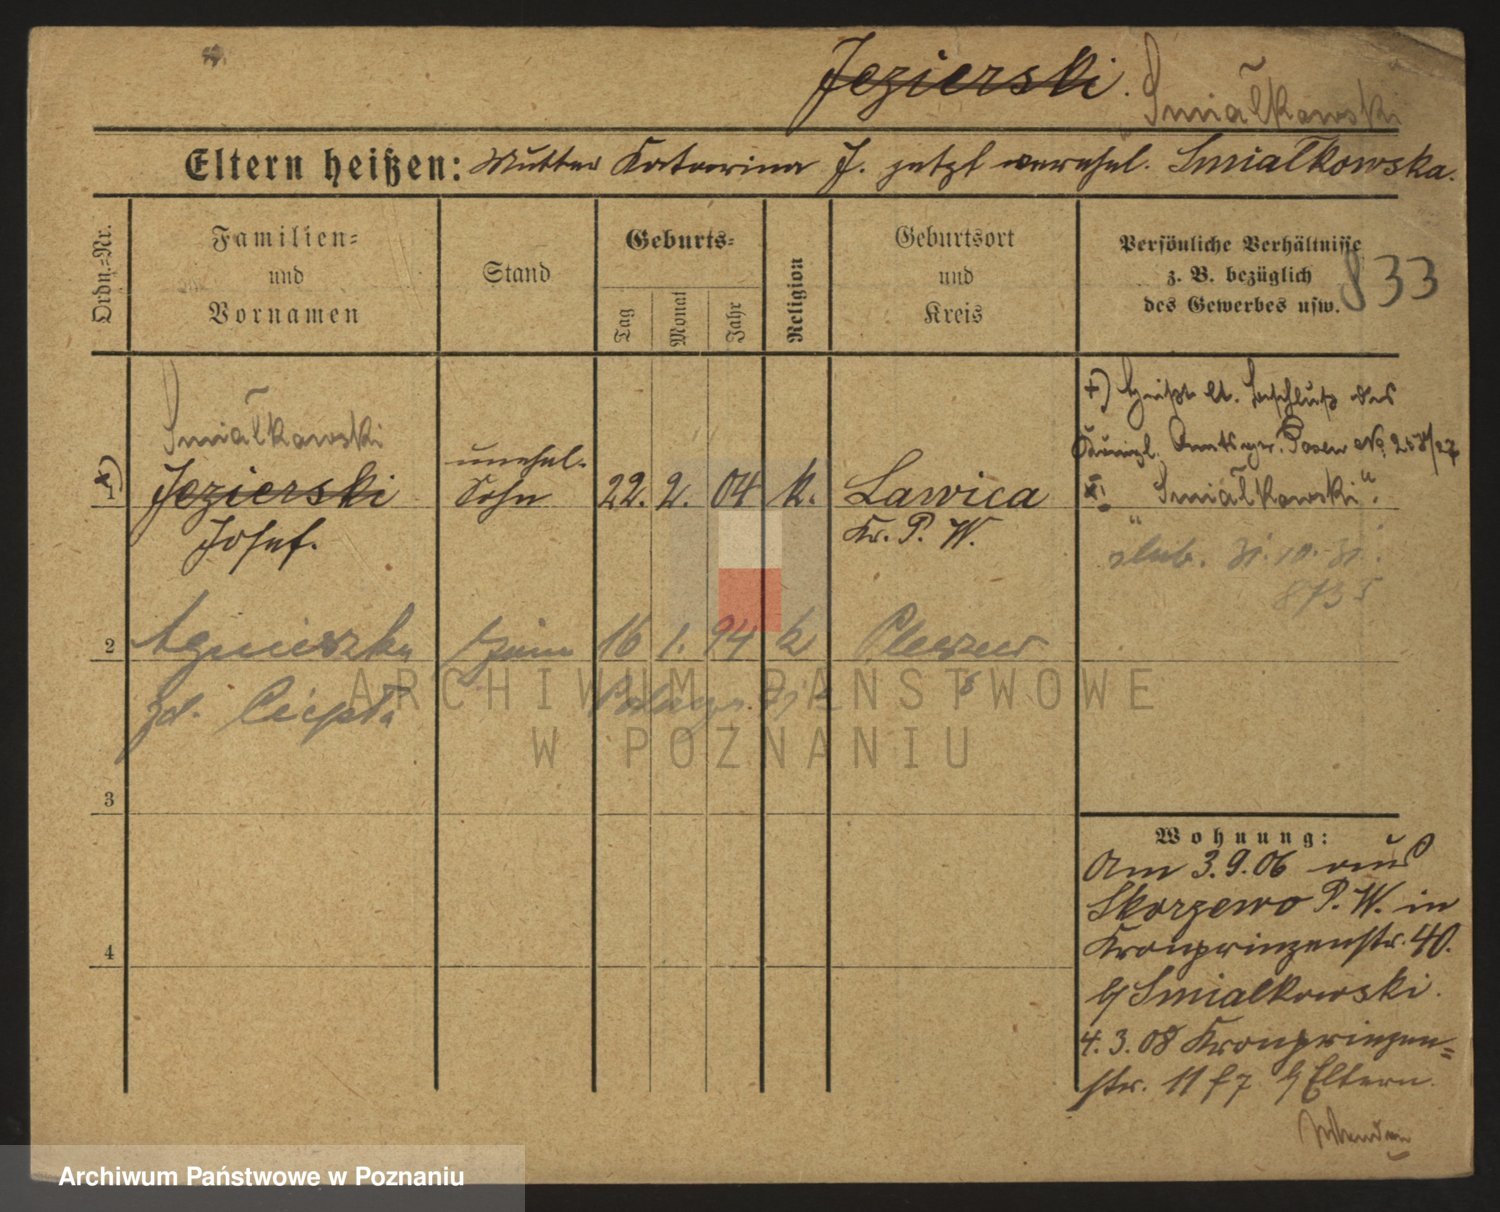 Jezierski. Śmiałkowski
Eltern heißen: Mutter Katarina J. jetzt verehel. Smialkowska.
Ordn.-Nr.
Familien-
und
Vornamen
Stand
Geburts-
Tag
Monat
Jahr
Religion
Geburtsort
und
Kreis
Persönliche Verhältnisse
z. B. bezüglich
des Gewerbes usw.
833
Śmiałkowski
x) 1 Jezierski
Josef.
unehel.
Sohn
22. 2. 04 k.
Lawica
Kr. P. W.
+) heißt lt. Beschluß des
Königl. Amtsger. Posen
"Śmiałkowski".
ślub. 31.10.31.
8735
2 Agnieszka
zd. Ciepła
żona 16 1. 94 k Pleszew
3
4
Wohnung:
Am 3.9.06 aus
Skorzewo P. W. in
Kronprinzenstr. 40.
b/ Smialkowski.
4. 3. 08 Kronprinzen=
str. 11 b/ Eltern.
ARCHIWUM PAŃSTWOWE
W POZNANIU
Archiwum Państwowe w Poznaniu